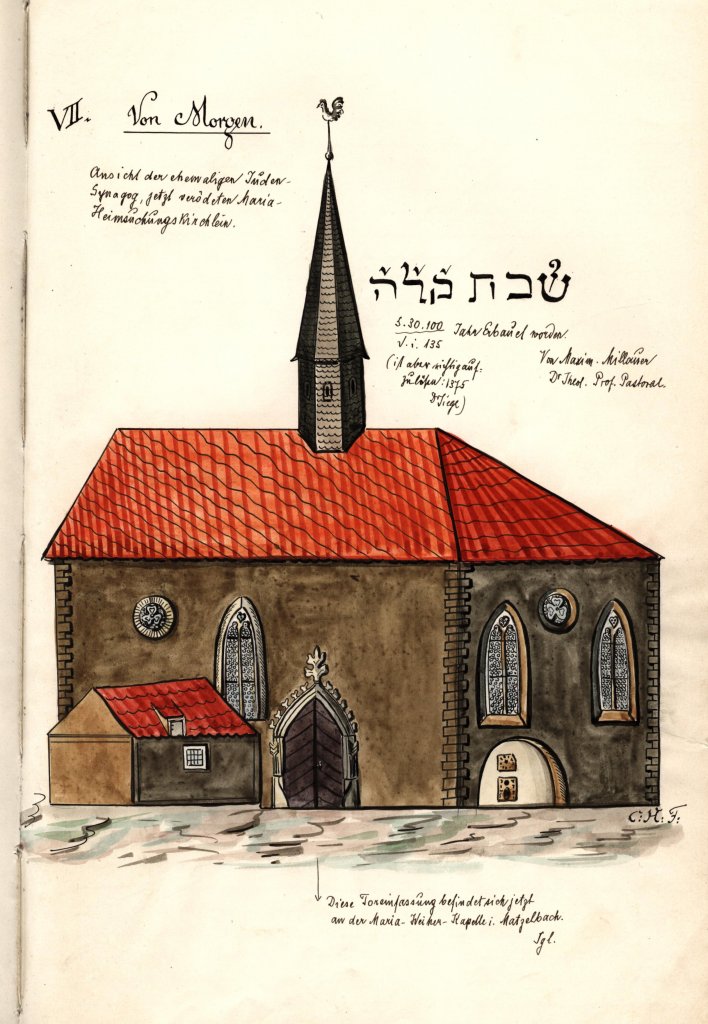 VII. Von Morgen.
Ansicht der ehemaligen Juden-
Synagog, jetzt verödeten Maria-
Heimsuchungskirchlein.
שבת קלה
5.30.100 Jahr Erbauet worden.
V. i. 135
(ist aber richtig auf-
zulösen: 1375
Dr
Von Maxim. Millauer
Dr Theol. Prof. Pastoral.
C: H: F:
Diese Toreinfassung befindet sich jetzt
an der Maria- Kapelle i. Matzelbach.